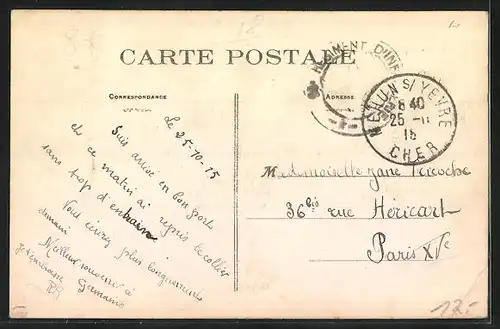 CARTE POSTALE
RÉGIMENT D'INF
CORRESPONDANCE
ADRESSE
MEHUN S/YEVRE
8 40
25 - 11
15
CHER
le 25-10-15
Suis arrivé en bon port
et ce matin ai repris le collier
sans trop d'entrain
Vous écrirez plus longuement
demain
Meilleur souvenir à
Mademoiselle Jane
36 bis rue Héricart
Paris XVe
12.-